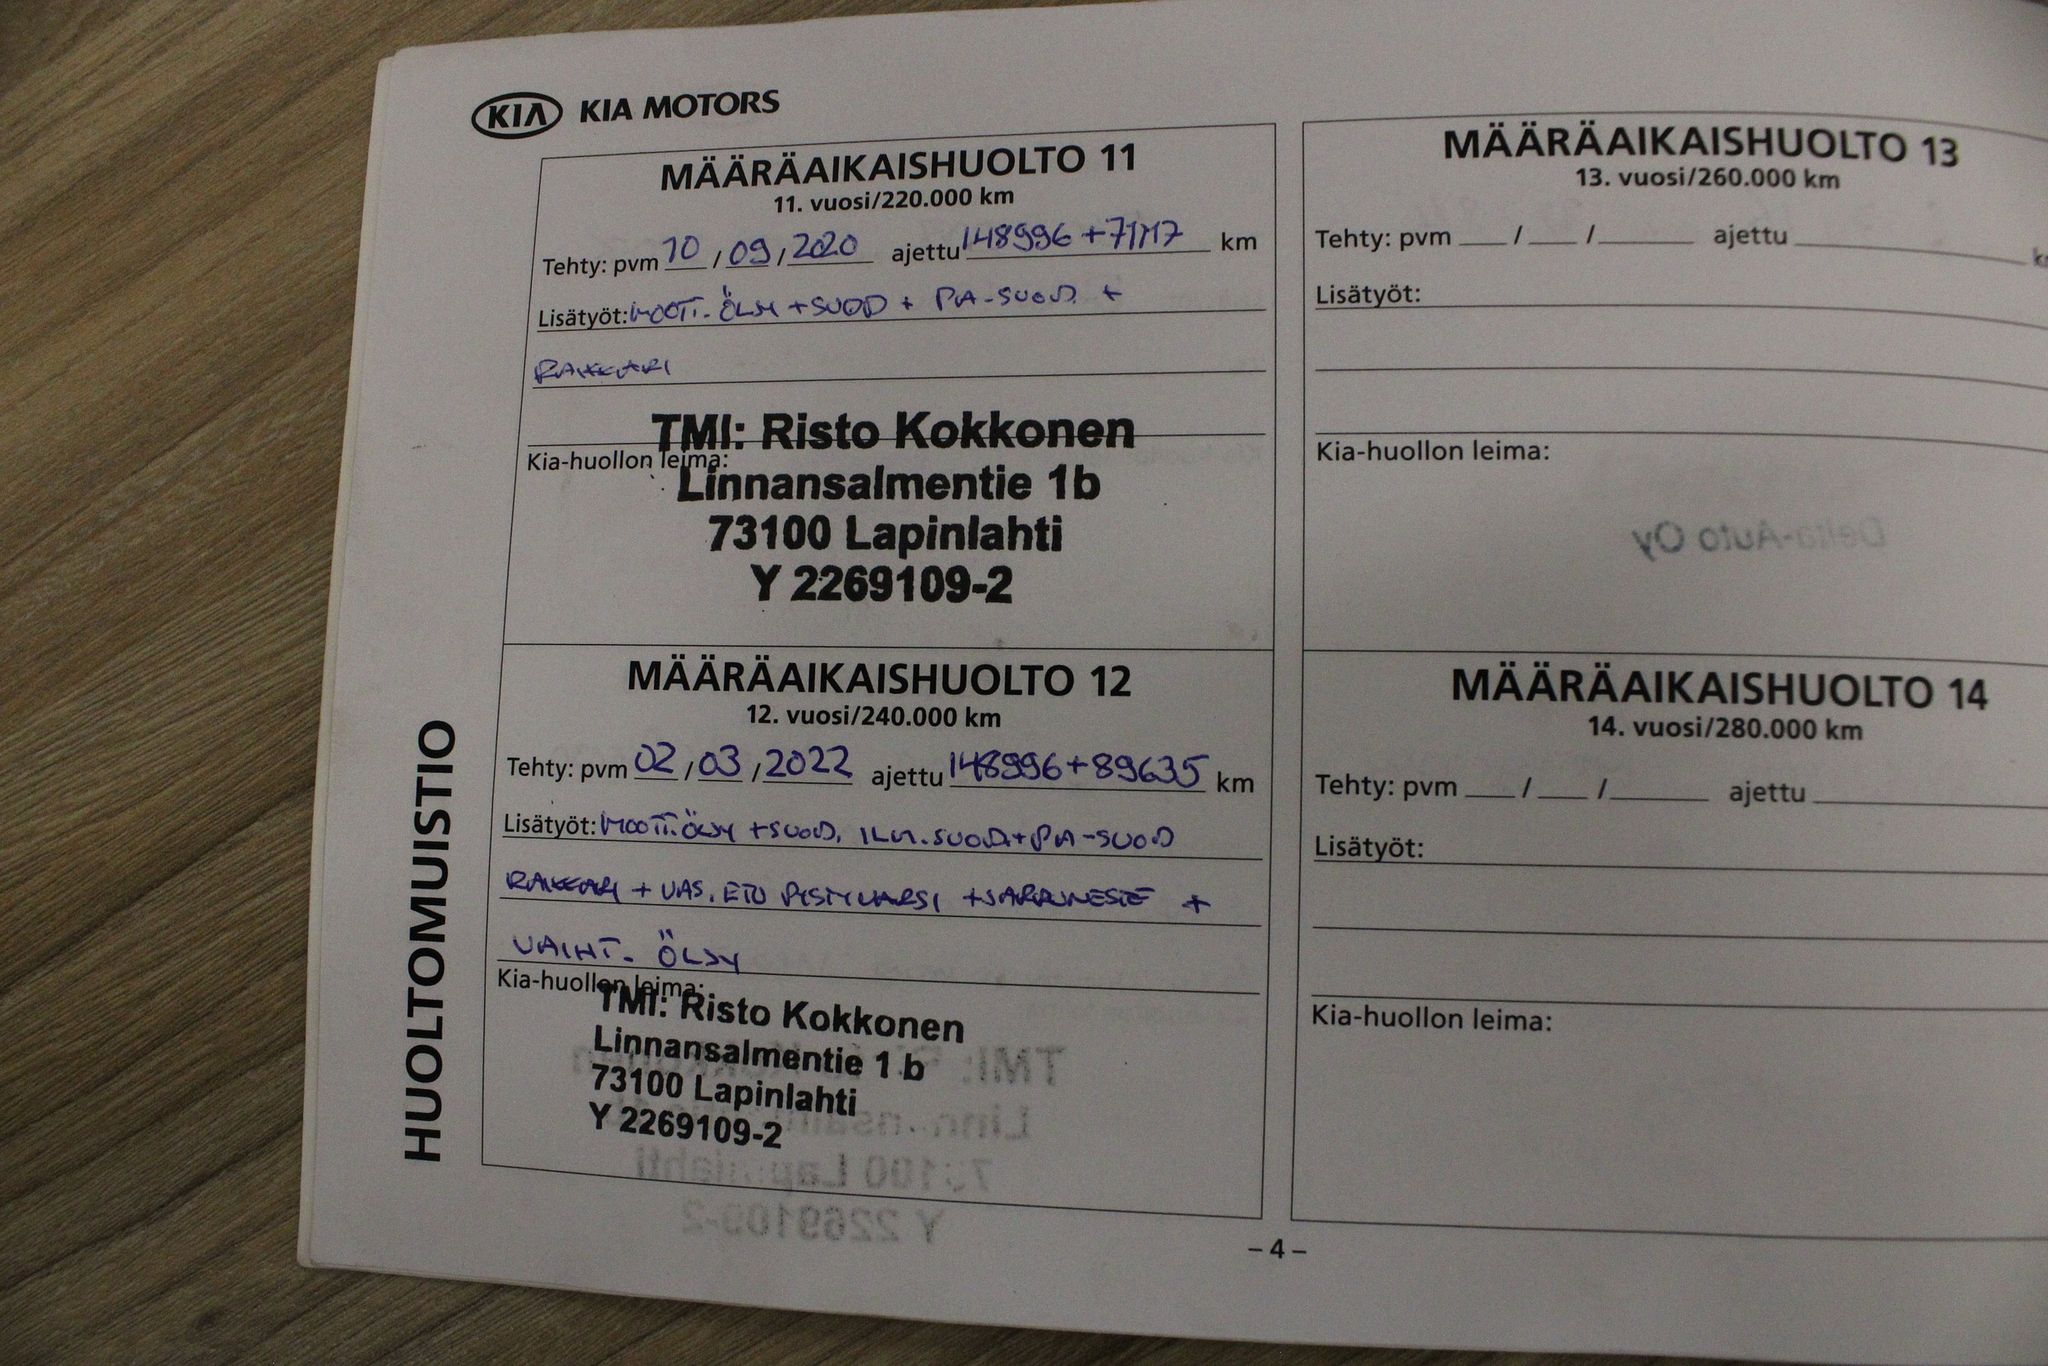 KIA KIA MOTORS
MÄÄRÄAIKAISHUOLTO 11
11. vuosi/220.000 km
Tehty: pvm 10 / 09 / 2020 ajettu 148996 + 71117 km
Lisätyöt: MOOTT. ÖLJY + SUOD + PA-SUOD +
RAIKKARI
Kia-huollon leima:
TMI: Risto Kokkonen
Linnansalmentie 1b
73100 Lapinlahti
Y 2269109-2
MÄÄRÄAIKAISHUOLTO 12
12. vuosi/240.000 km
Tehty: pvm 02 / 03 / 2022 ajettu 148996 + 89635 km
Lisätyöt: MOOTT. ÖLJY + SUOD. ILM. SUOD + PA-SUOD
RAIKKARI + VAS. ETU + JARRUNESTE +
VAIHT. ÖLJY
Kia-huollon leima:
TMI: Risto Kokkonen
Linnansalmentie 1 b
73100 Lapinlahti
Y 2269109-2
MÄÄRÄAIKAISHUOLTO 13
13. vuosi/260.000 km
Tehty: pvm / / ajettu km
Lisätyöt:
Kia-huollon leima:
Delta-Auto Oy
MÄÄRÄAIKAISHUOLTO 14
14. vuosi/280.000 km
Tehty: pvm / / ajettu
Lisätyöt:
Kia-huollon leima:
HUOLTOMUISTIO
– 4 –